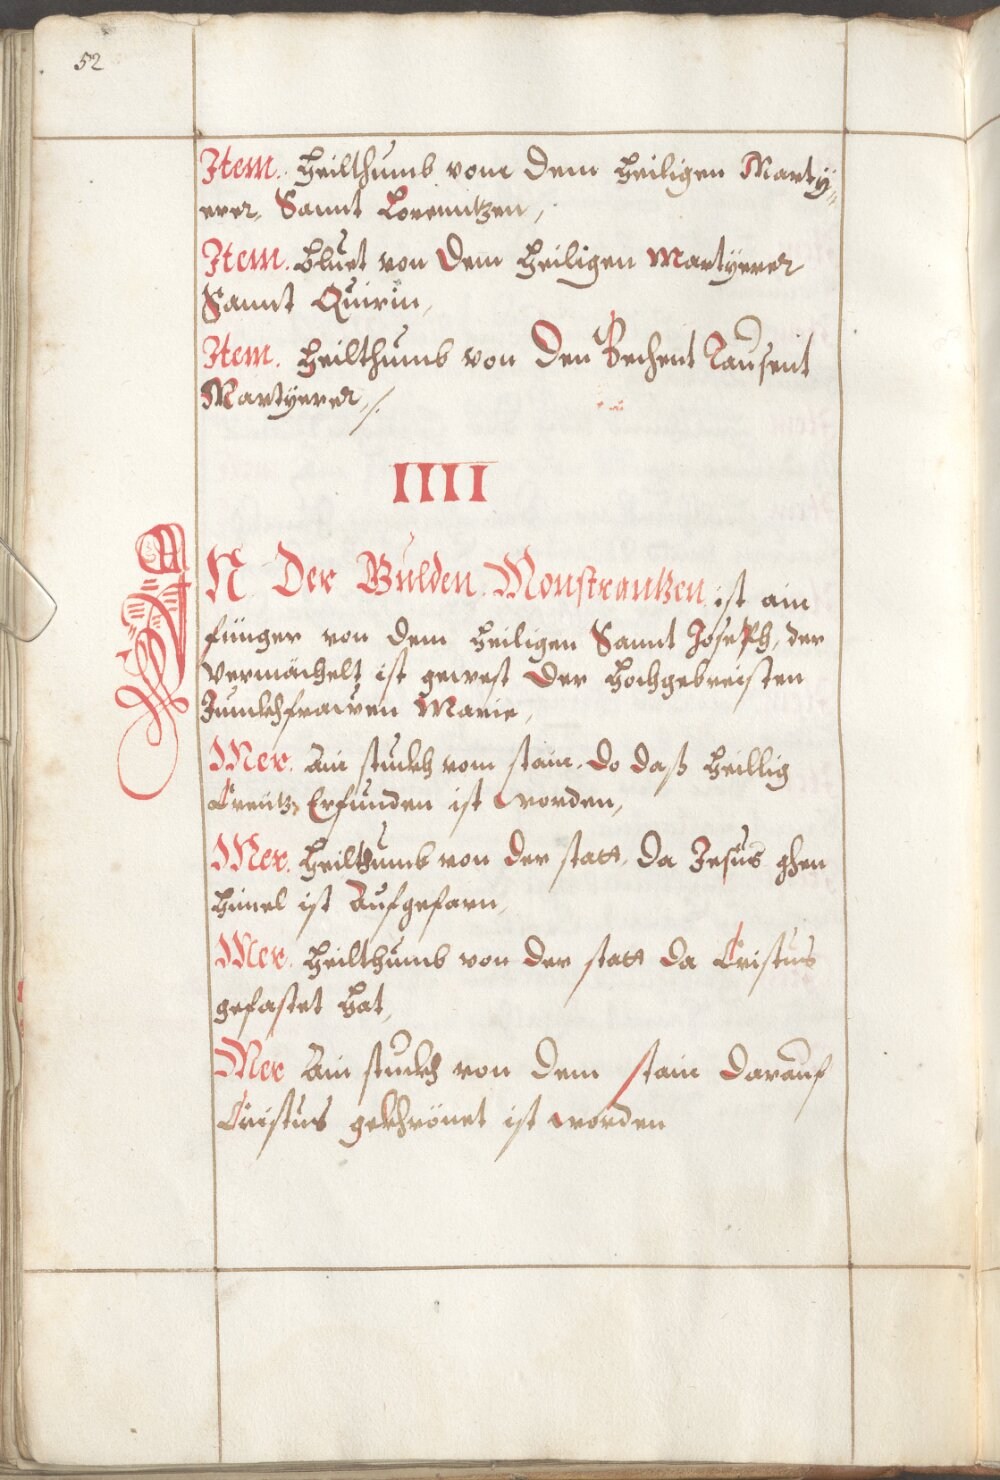 52
Item. Heilthumb vonn dem heiligen Marty-
erer, Sannt Lorenntzen,
Item. Bluet von dem heiligen Martyerer
Sannt Quirin,
Item. Heilthumb von den Zechent Tausent
Martyerer,/.
IIII
IN Der Gulden Monstrantzen ist ain
finger von dem heiligen Sannt Joseph, der
vermächelt ist gewest der hochgebreisten
Junckhfrawen Marie,
Mer. Ain stuckh vom stain, do daß heillig
Creutz, Erfunden ist worden,
Mer. Heilthumb von der statt, da Jesus ghen
himel ist aufgefarn,
Mer. Heilthumb von der statt da Cristus
gefastet hat,
Mer Ain stuckh von dem stain darauf
Cristus gekhrönet ist worden